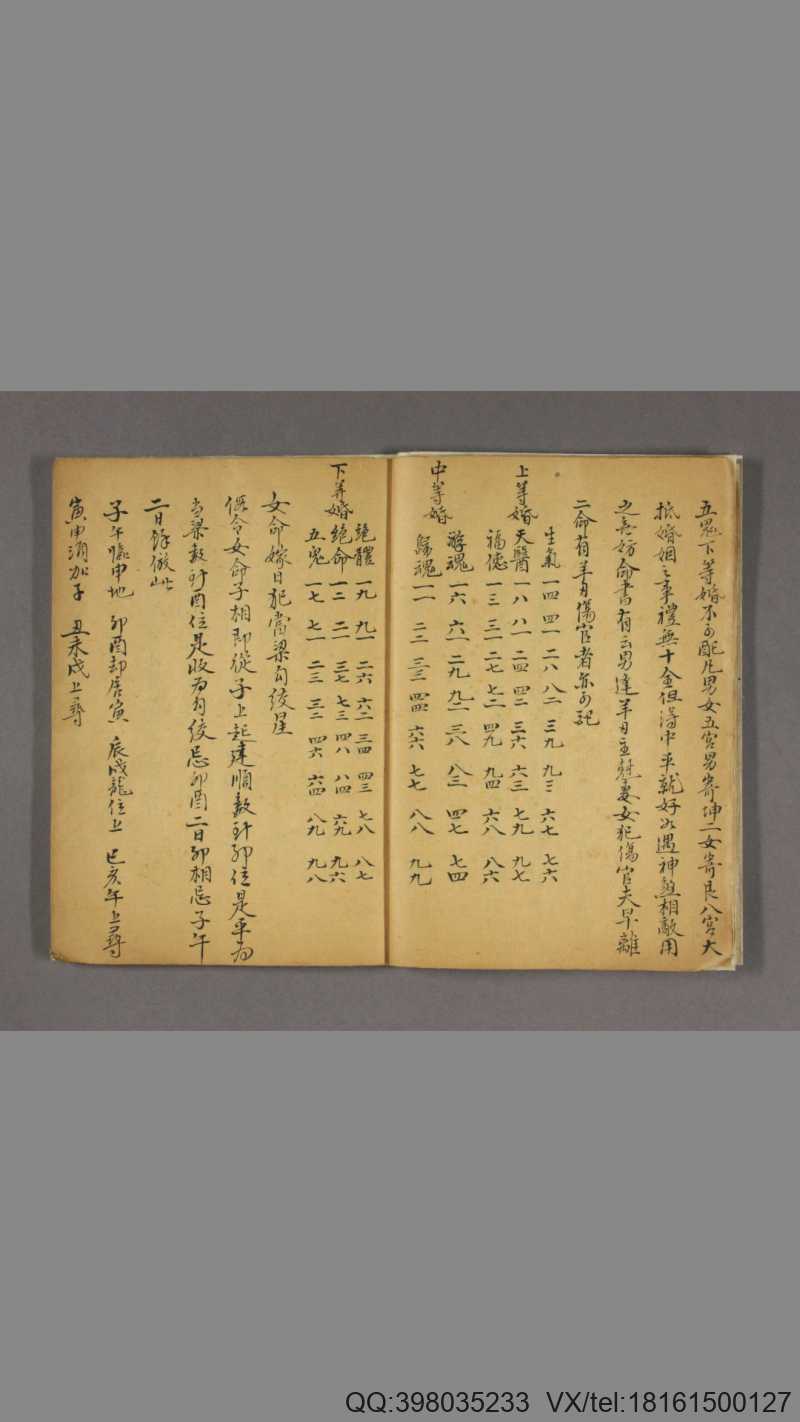 五鬼下等婚不可配凡男女五宮男寄坤二女寄艮八宮大
抵婚姻之事禮無十全但得中平就好如遇神煞相敵用
之無妨命書有云男逢羊刃主尅妻女犯傷官夫早離
二命有羊刃傷官者亦可配
上等婚
生氣 一四 四一 二八 八二 三九 九三 六七 七六
天醫 一八 八一 二四 四二 三六 六三 七九 九七
福德 一三 三一 二七 七二 四九 九四 六八 八六
中等婚
游魂 一六 六一 二九 九二 三八 八三 四七 七四
歸魂 一一 二二 三三 四四 六六 七七 八八 九九
下等婚
絕體 一九 九一 二六 六二 三四 四三 七八 八七
絕命 一二 二一 三七 七三 四八 八四 六九 九六
五鬼 一七 七一 二三 三二 四六 六四 八九 九八
女命嫁日犯當梁勾絞星
假令女命子相即從子上起建順數到卯位是平為
當梁數到酉位是收為勾絞忌卯酉二日卯相忌子午
二日餘倣此
子午臨申地 卯酉却居寅 辰戌龍位上 巳亥午上尋
寅申須加子 丑未戌上尋
QQ:398035233 VX/tel:18161500127